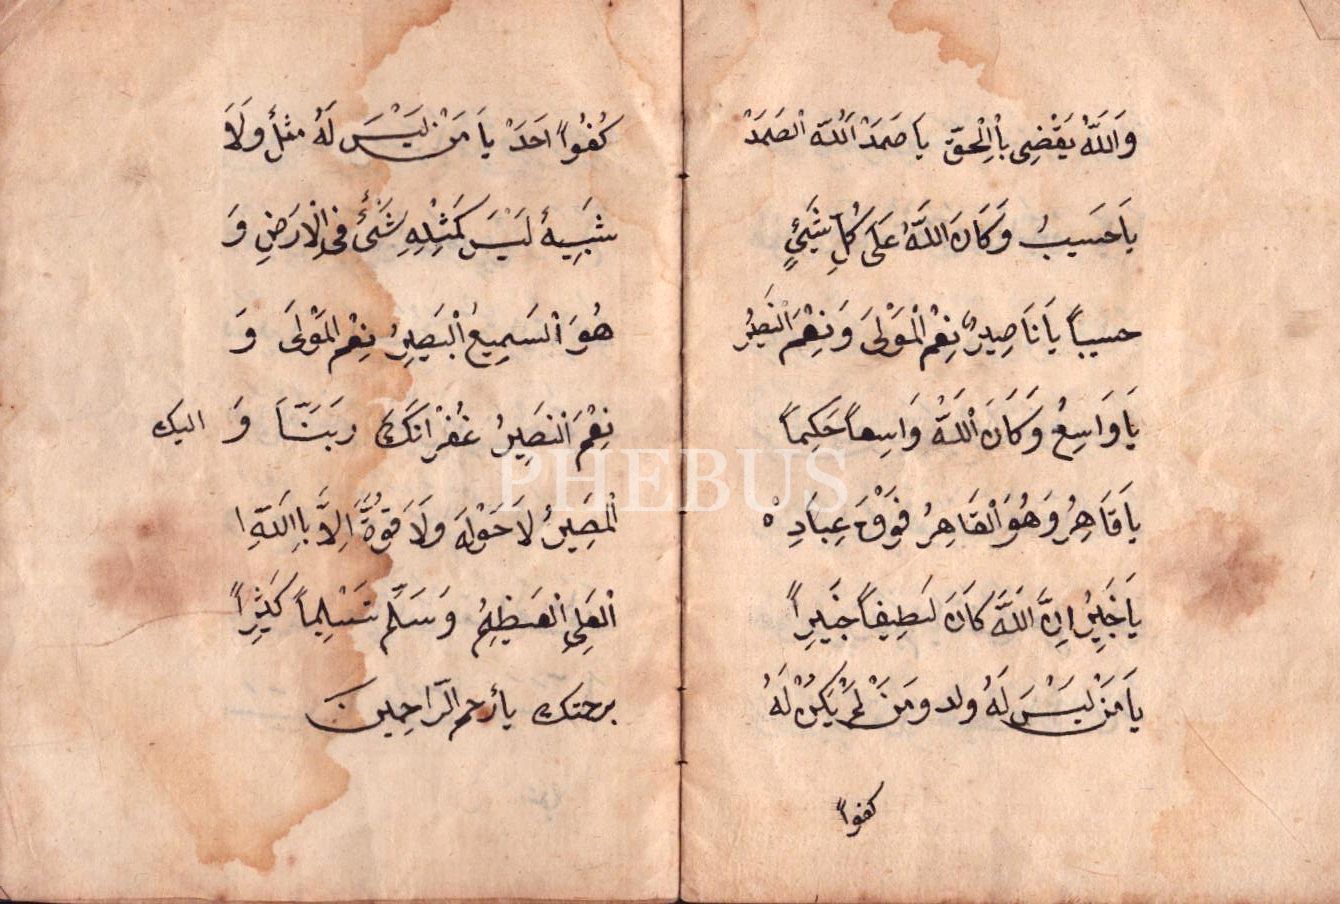 وَاللّٰهُ يَقْضِى بِالْحَقِّ يَا صَمَدْ اَللّٰه الصَمَدْ
يَا حَسِيبُ وَكَانَ اللّٰهُ عَلَى كُلِّ شَيْئٍ
حسيباً يَا نَاصِيرُ نِعْمَ الْمَوْلَى وَنِعْمَ النَّصِيرُ
يَا وَاسِعُ وَكَانَ اللّٰهُ وَاسِعاً حَكِيماً
يَا قَاهِرُ وَهُوَ الْقَاهِرُ فَوْقَ عِبَادِهْ
يَا خَبِيرُ اِنَّ اللّٰهَ كَانَ لَطِيفاً خَبِيراً
يَا مَنْ لَيْسَ لَهُ ولد ومَنْ لَمْ يَكُنْ لَهُ
كفواً
كُفُواً اَحَدْ يَا مَنْ لَيْسَ لَهُ مثلُ ولَا
شَبِيهُ لَيْسَ كَمَثْلِهِ شَيْئُ فى الْاَرَضِ وَ
هُوَ السَمِيعُ الْبَصِيرُ نِعْمَ المَوْلَى وَ
نِعْمَ النَصِيرُ غُفْرَانَكَ رَبَنَّا وَ اليك
الْمَصِيرُ لَا حَوْلَ ولَا قُوَّةَ اِلَّا بِااللّٰهِ ا
الْعَلِى الْعَظِيمُ وَسَلَّمَ تَسْلِيماً كَثِيراً
برحمتك يأرحم الرَّاحِمِينَ
PHEBUS